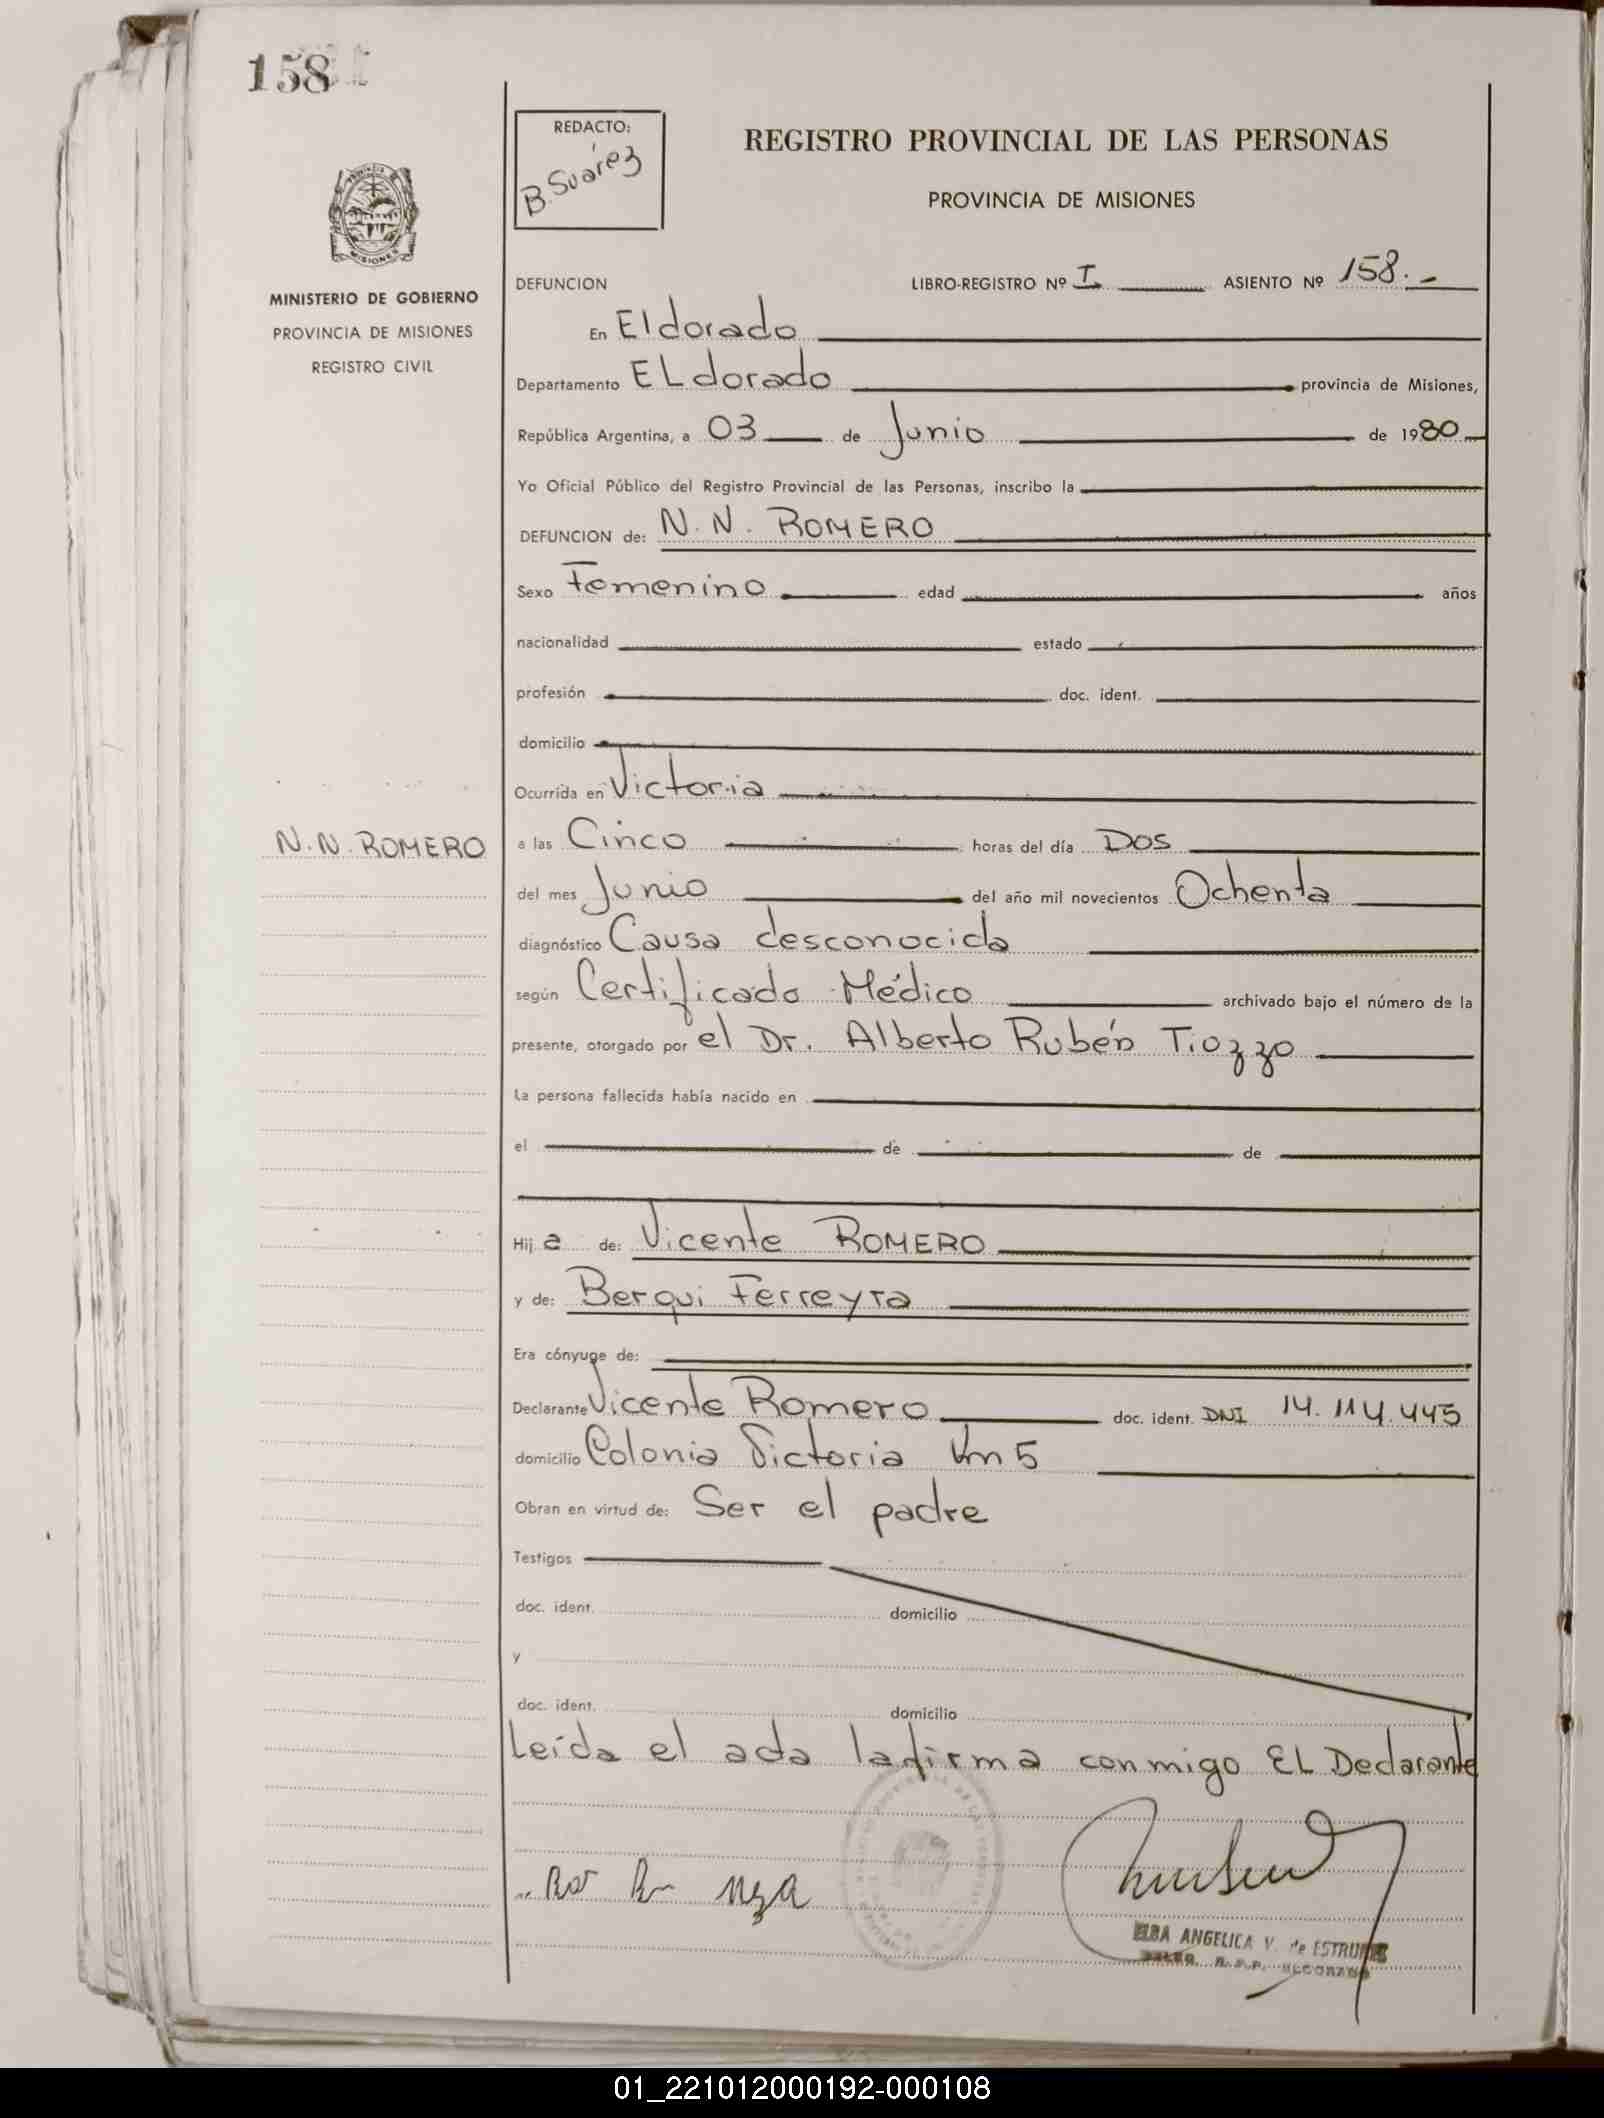 158
REDACTO:
B. Suárez
REGISTRO PROVINCIAL DE LAS PERSONAS
PROVINCIA DE MISIONES
MINISTERIO DE GOBIERNO
PROVINCIA DE MISIONES
REGISTRO CIVIL
DEFUNCION LIBRO-REGISTRO Nº I ASIENTO Nº 158.-
En Eldorado
Departamento ELdorado provincia de Misiones,
República Argentina, a 03 de Junio de 1980
Yo Oficial Público del Registro Provincial de las Personas, inscribo la
DEFUNCION de: N. N. ROMERO
Sexo Femenino edad años
nacionalidad estado
profesión doc. ident.
domicilio
Ocurrida en Victoria
N. N. ROMERO
a las Cinco horas del día Dos
del mes Junio del año mil novecientos Ochenta
diagnóstico Causa desconocida
según Certificado Médico archivado bajo el número de la
presente, otorgado por el Dr. Alberto Rubén Tiozzo
La persona fallecida había nacido en
el de de
Hij a de: Vicente ROMERO
y de: Berqui Ferreyra
Era cónyuge de:
Declarante Vicente Romero doc. ident. DNI 14.114.445
domicilio Colonia Victoria Km 5
Obran en virtud de: Ser el padre
Testigos
doc. ident. domicilio
y
doc. ident. domicilio
Leída el acta la firma conmigo EL Declarante
ELBA ANGELICA V. de
R.P.P. ELDORADO
01_221012000192-000108